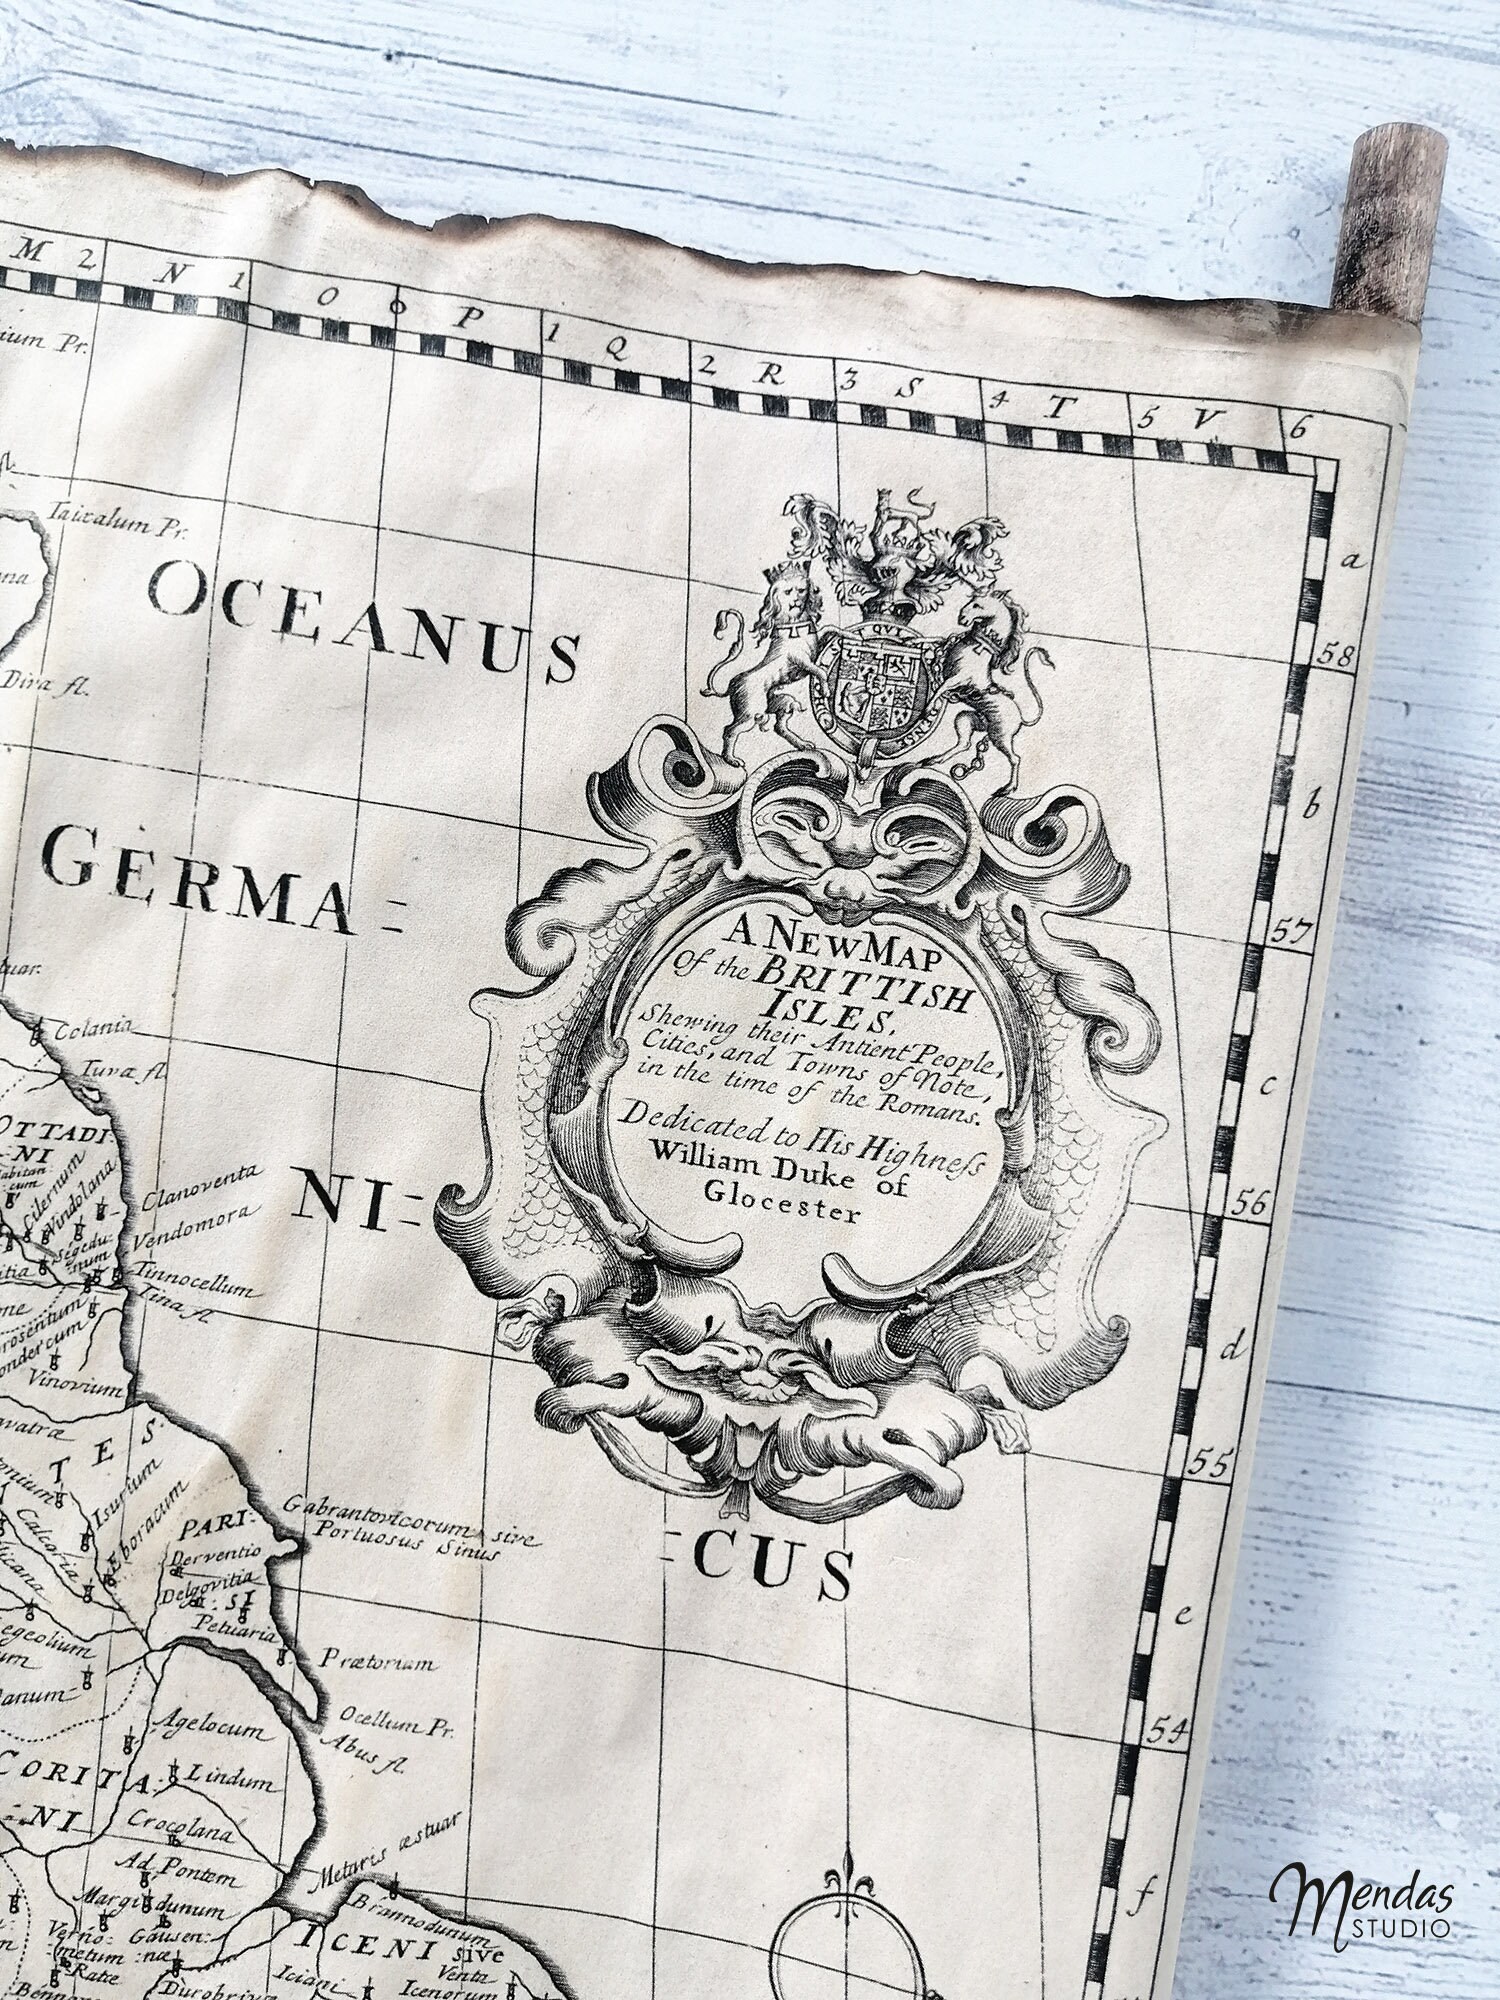 M 2 N 1 O 0 P 1 Q 2 R 3 S 4 T 5 V 6
Taixalum Pr.
OCEANUS
Diva fl.
GERMA=
NI=
=CUS
QUI
A NEW MAP
Of the BRITTISH
ISLES,
Shewing their Antient People,
Cities, and Towns of Note,
in the time of the Romans.
Dedicated to His Highneſs
William Duke of
Glocester
a
58
b
57
c
56
d
55
e
54
f
Colania
OTTADI:
NI
Cilernum
Vindolana
Segedu:
num
Clanoventa
Vendomora
Tinnocellum
Tina fl.
Vinovium
TES
Isurium
Eboracum
Calcaria
PARI:
SI
Derventio
Delgovitia
Petuaria
Gabrantovicorum sive
Portuosus Sinus
Prætorium
Ocellum Pr.
Abus fl.
Agelocum
CORITA:
NI
Lindum
Crocolana
Ad Pontem
Margidunum
Verno:
metum
Gausen:
næ
Ratæ
Metaris æstuar
Brannodunum
ICENI sive
Iciani
Venta
Icenorum
Mendas
STUDIO